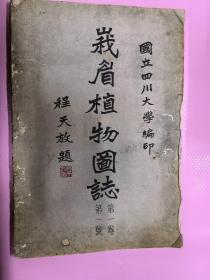 國立四川大學編印
峩眉植物圖誌
第一卷
第一號
程天放題